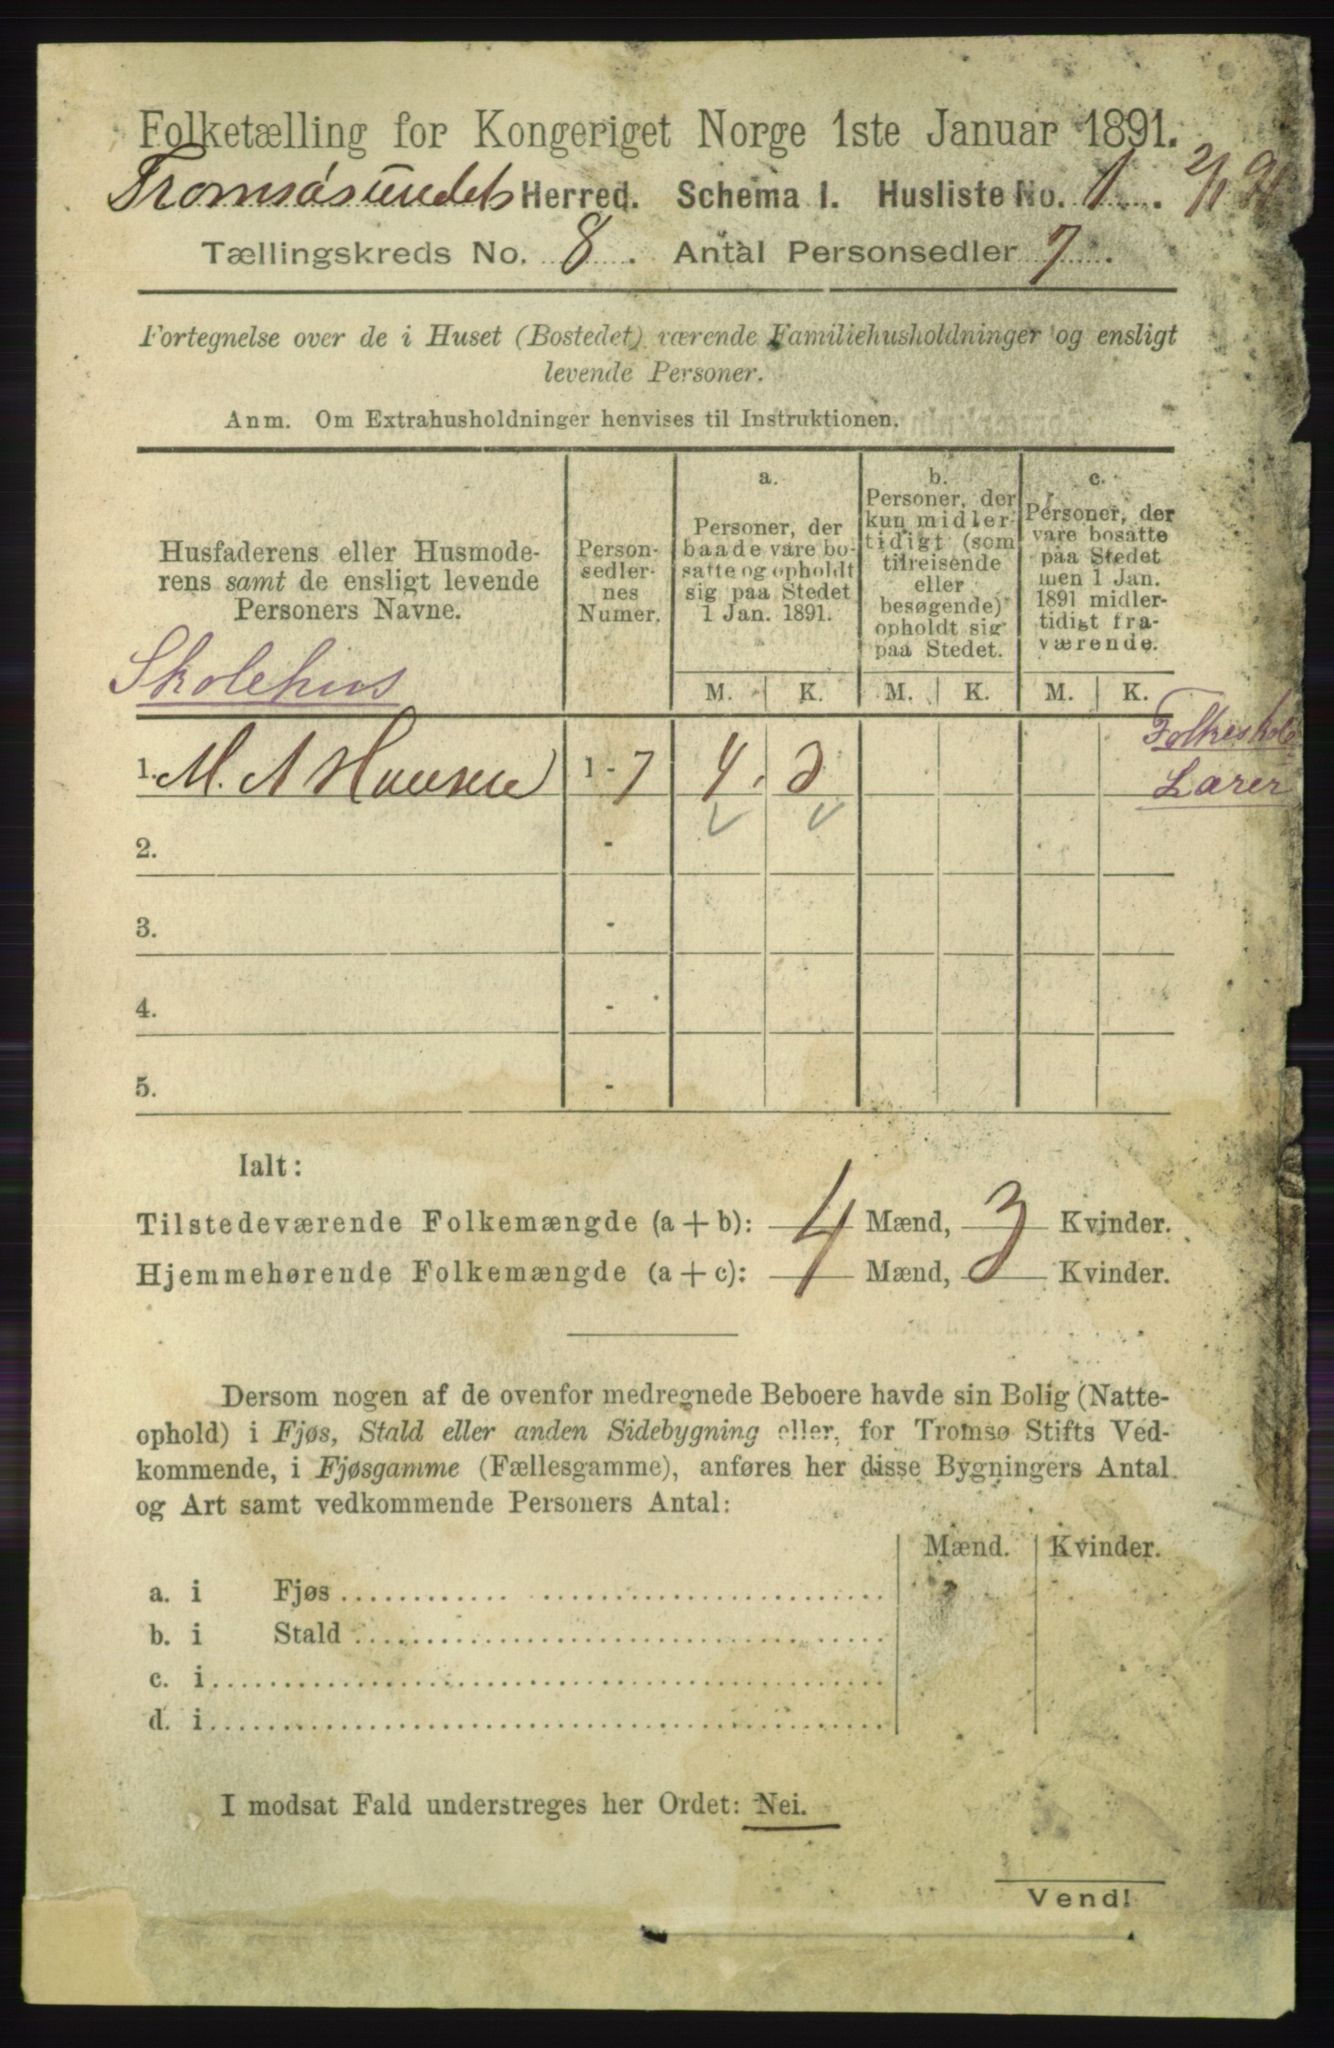 Folketælling for Kongeriget Norge 1ste Januar 1891.
Tromsøsundets Herred. Schema I. Husliste No. 1. 2/1 91
Tællingskreds No. 8. Antal Personsedler 7.
Fortegnelse over de i Huset (Bostedet) værende Familiehusholdninger og ensligt
levende Personer.
Anm. Om Extrahusholdninger henvises til Instruktionen.
Husfaderens eller Husmode-
rens samt de ensligt levende
Personers Navne.
Skolehus
Person-
sedler-
nes
Numer.
a.
Personer, der
baade vare bo-
satte og opholdt
sig paa Stedet
1 Jan. 1891.
b.
Personer, der
kun midler-
tidigt (som
tilreisende
eller
besøgende)
opholdt sig
paa Stedet.
c.
Personer, der
vare bosatte
paa Stedet
men 1 Jan.
1891 midler-
tidigt fra-
værende.
M. K. M. K. M. K.
1. M. A Hansen 1 - 7 4. 3
Folkeskole
Lærer
2. -
3. -
4. -
5. -
Ialt:
Tilstedeværende Folkemængde (a + b): 4 Mænd, 3 Kvinder.
Hjemmehørende Folkemængde (a + c): Mænd, Kvinder.
Dersom nogen af de ovenfor medregnede Beboere havde sin Bolig (Natte-
ophold) i Fjøs, Stald eller anden Sidebygning eller, for Tromsø Stifts Ved-
kommende, i Fjøsgamme (Fællesgamme), anføres her disse Bygningers Antal
og Art samt vedkommende Personers Antal:
Mænd. Kvinder.
a. i Fjøs
b. i Stald
c. i
d. i
I modsat Fald understreges her Ordet: Nei.
Vend!